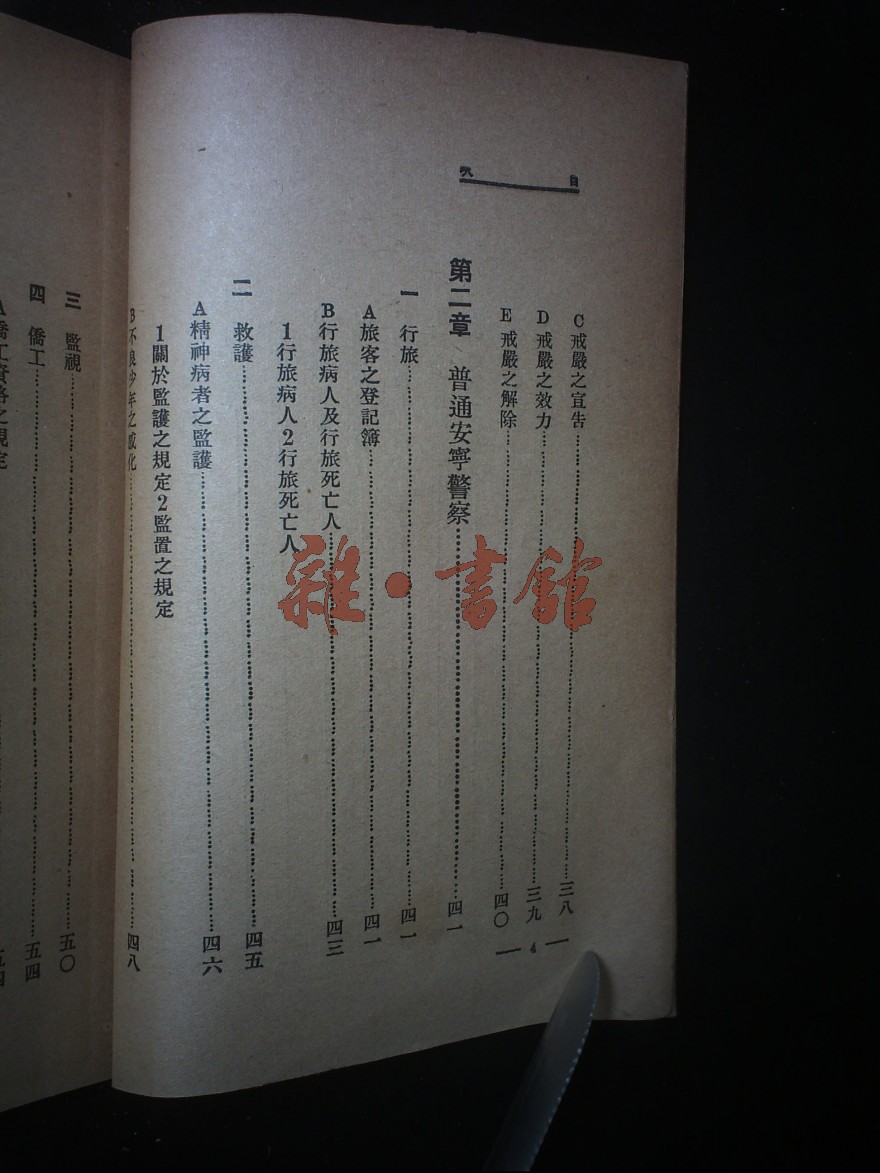 目次
C戒嚴之宣告……三八
D戒嚴之效力……三九
E戒嚴之解除……四〇
第二章 普通安寧警察……四一
一 行旅……四一
A旅客之登記簿……四一
B行旅病人及行旅死亡人……四三
1行旅病人2行旅死亡人
二 救護……四五
A精神病者之監護……四六
1關於監護之規定2監置之規定
B不良少年之感化……四八
— 4 —
三 監視……五〇
四 僑工……五四
A僑工資格之規定
雜·書館